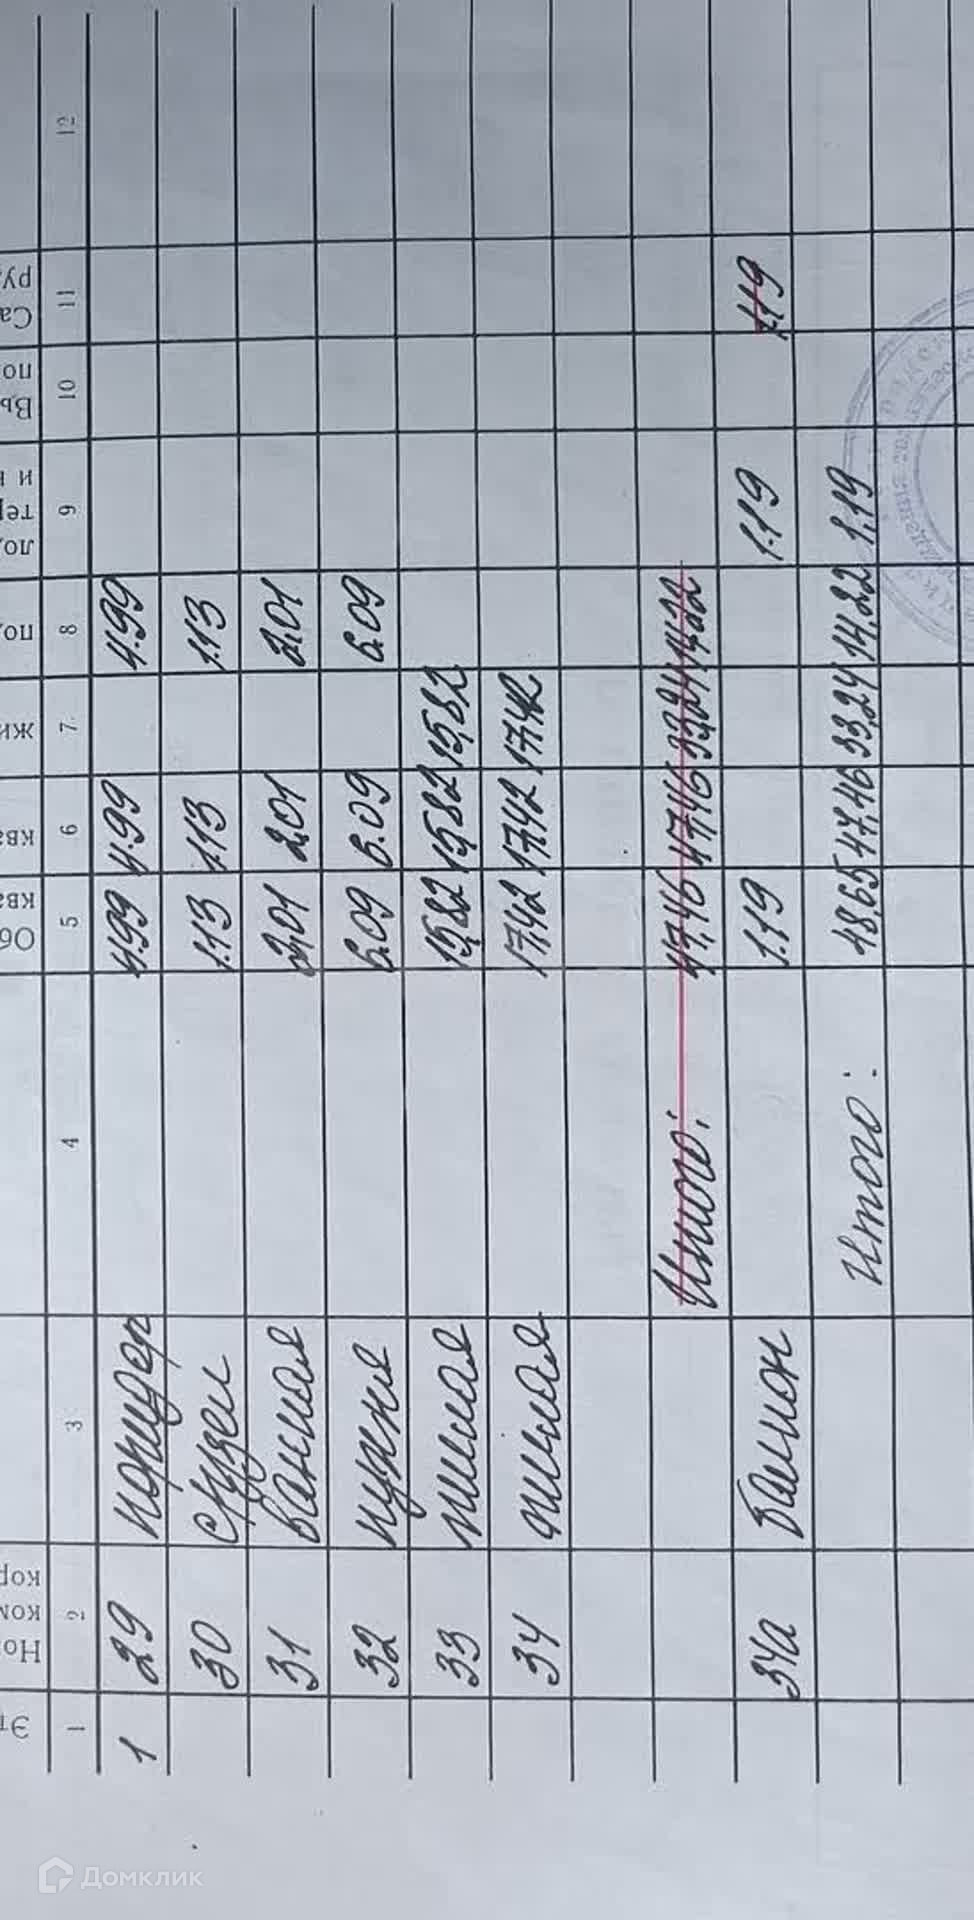 Эт
Но
ком
кор
Об
ква
ква
жи
по
ло
тер
и
Вы
по
Са
ру
1 2 3 4 5 6 7 8 9 10 11 12
1 29 коридор 4.99 4.99 4.99
30 с/узел 1.13 1.13 1.13
31 ванная 2,01 2.01 2,01
32 кухня 6.09 6.09 6.09
33 жилая 15,82 15,82 15,82
34 жилая 17,42 17,42 17,42
Итого: 47,46 47,46 33,24 14,22
34а Балкон 1.19 1.19 1.19
Итого: 48,65 47,46 33,24 14,22 1,19
Домклик